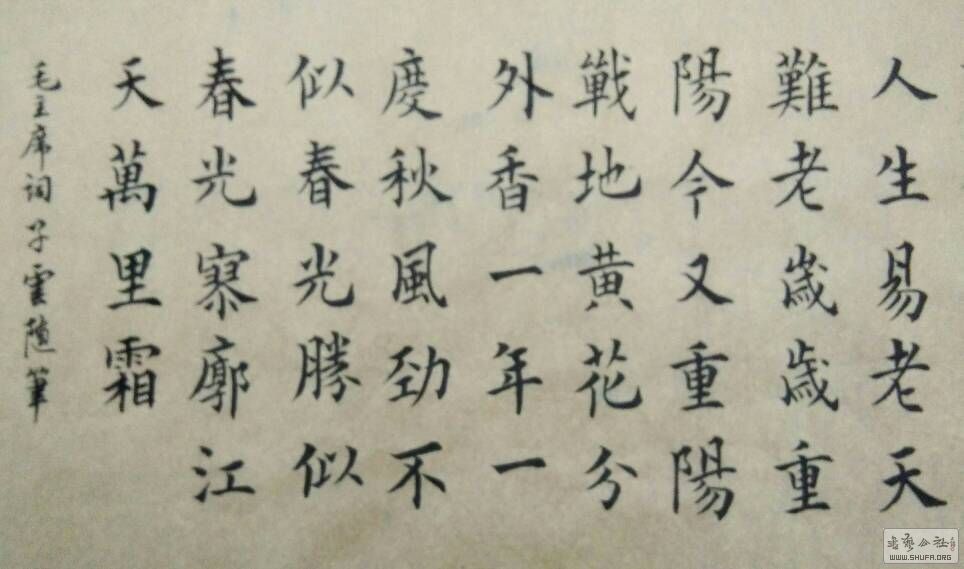 人生易老天
難老歲歲重
陽今又重陽
戰地黃花分
外香一年一
度秋風勁不
似春光勝似
春光寥廓江
天萬里霜
毛主席詞子雲隨筆
WWW.SHUFA.ORG